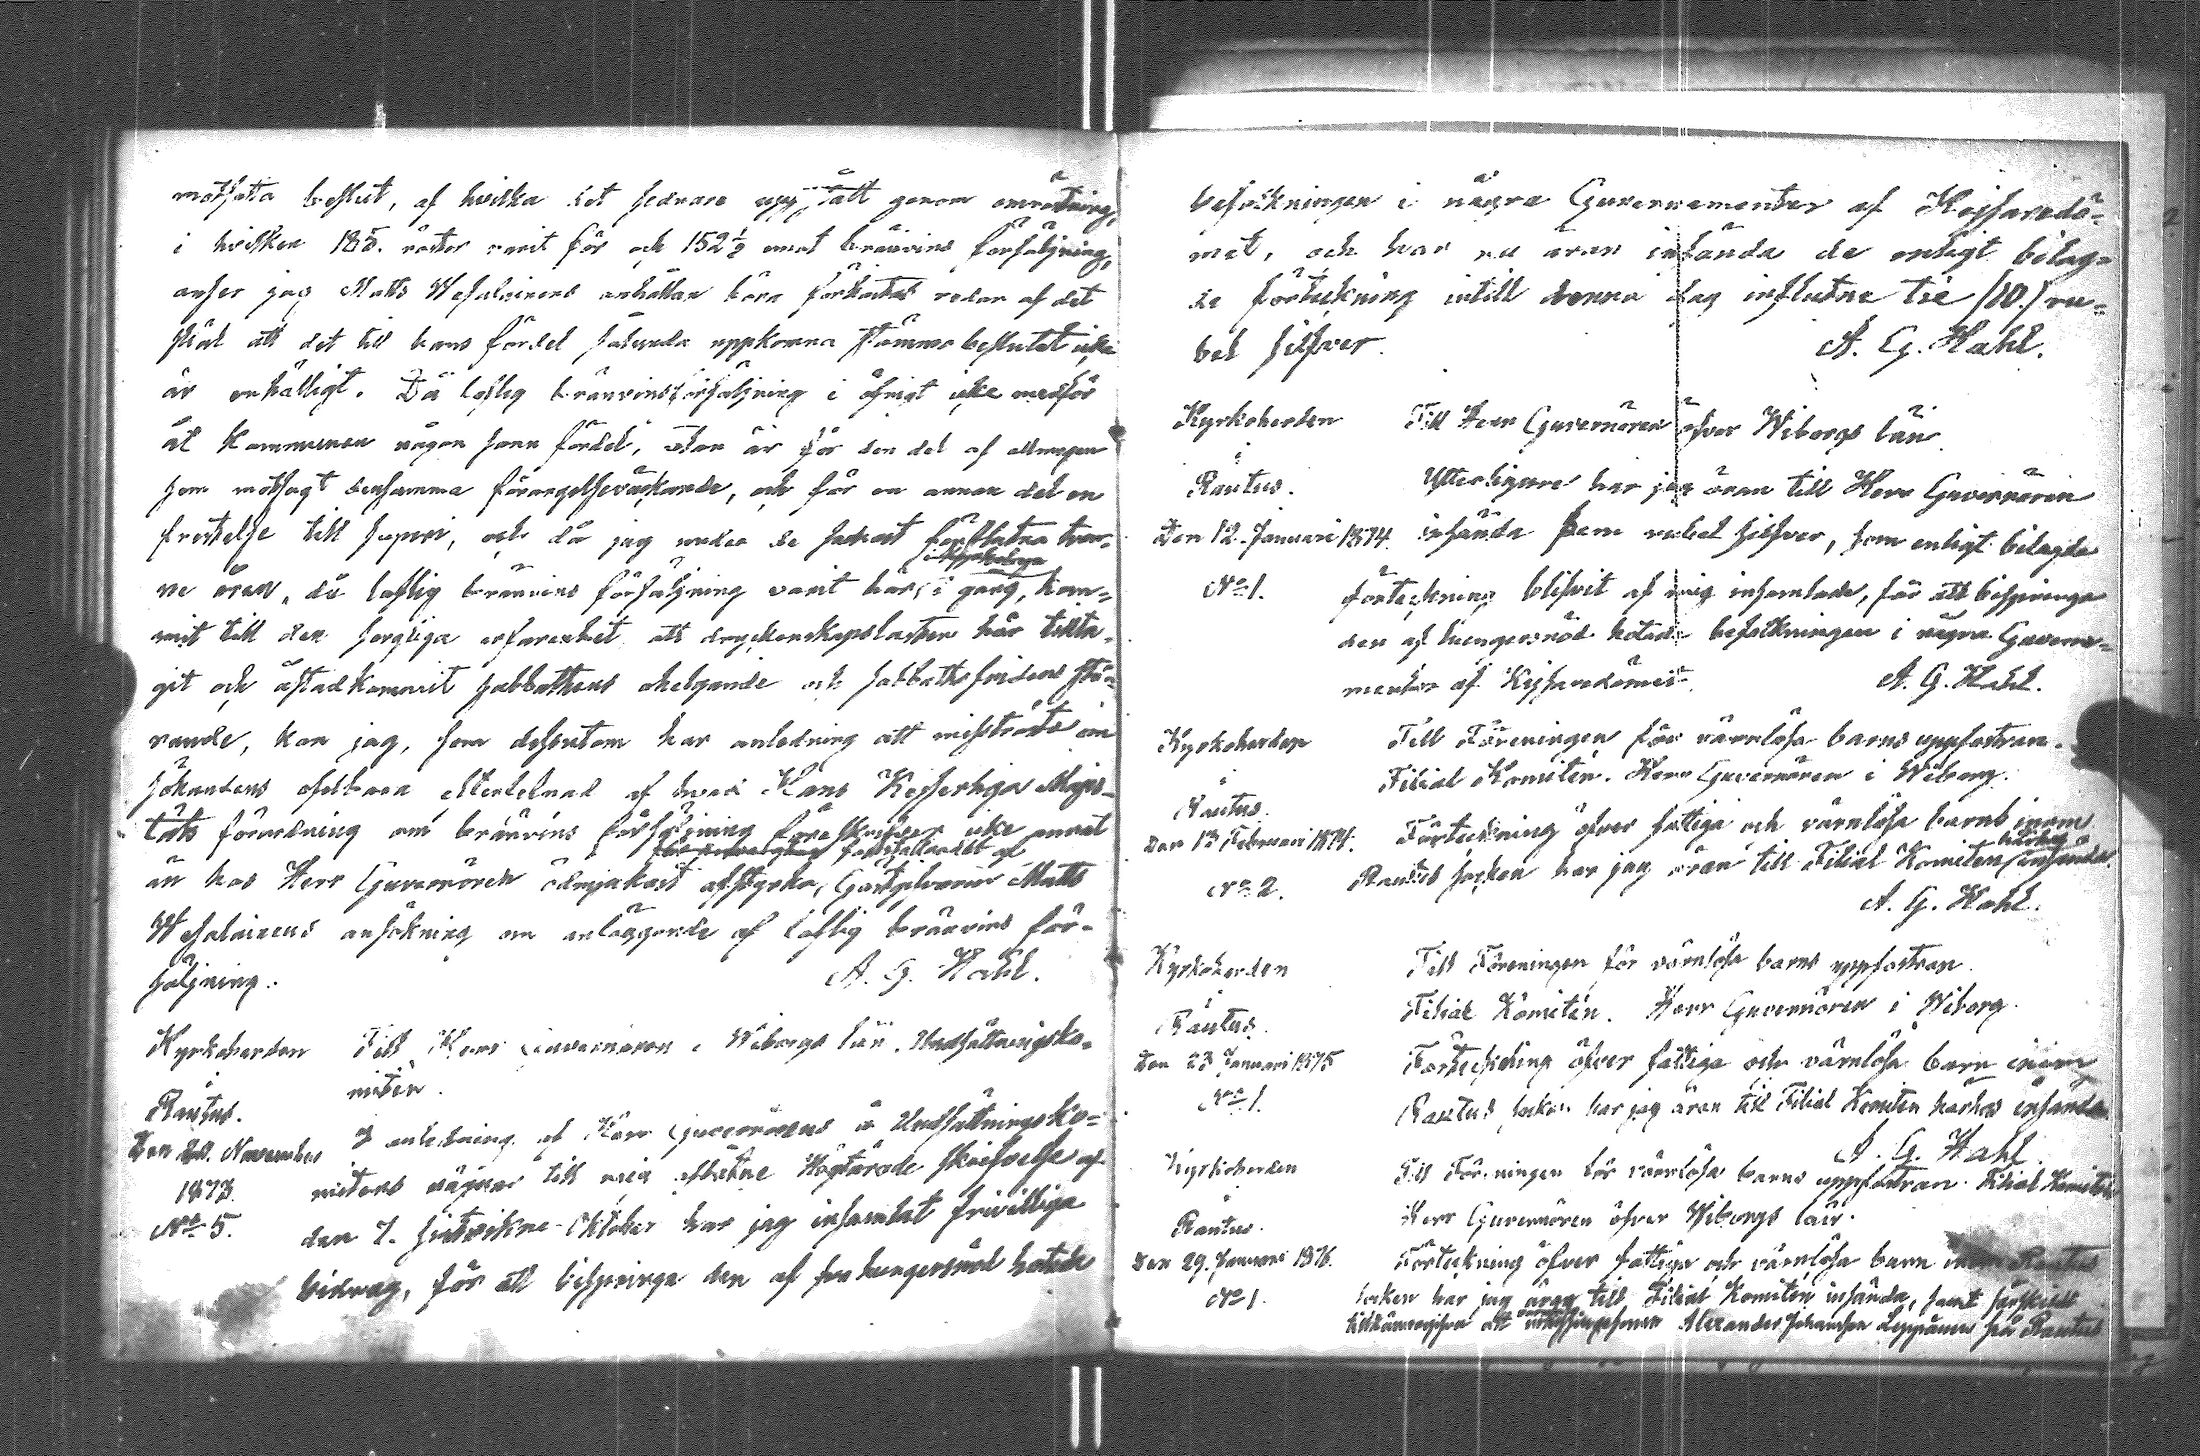 motsatta beslut, af hvilka det sednare uppstått genom omröstning,
i hvilken 185. röster varit för och 152½ emot bränvins försäljning,
anser jag Matts Wesalainens anhållan böra förkastas redan af det
skäl att det till hans fördel sålunda uppkomna stämmobeslutet icke
är enhälligt. Då laflig bränvinsförsäljning i öfrigt icke medför
åt Kommunen någon sann fördel, utan är för den del af allmogen
som motsagt densamma förargelseväckande, och för en annan del en
frestelse till superi, och då jag under de sednast förflutna tven-
ne åren, då laflig bränvins försäljning varit här i gång, kom-
mit till den sorgliga erfarenhet att dryckenskapslasten här tillta-
git och åstadkommit sabbathens ohelgande och sabbathsfridens stö-
rande, kan jag, som dessutom har anledning att misströsta om
sökandens ofelbara efterlefnad af hvad Hans Kejserliga Majes-
täts förordning om bränvins försäljning föreskrifver icke annat
än hos Herr Guvernören ödmjukast afstyrka, Gästgifvaren Matts
Wesalainens ansökning om anläggande af laflig bränvins för-
säljning.
A. G. Hahl.
Kyrkoherden Till Herr Guvernören i Wiborgs län. Undsättningsko-
mitén.
i
Rautus.
Den 20. November I anledning af Herr Guvernörens å Undsättningsko-
1873. miténs vägnar till mig aflåtne Högtärade skrifvelse af
No 5. den 7. sistvikne Oktober har jag insamlat frivilliga
bidrag, för att bispringa den af hungersnöd hotade
befolkningen i några Guvernementer af Kejsaredö-
met, och har nu äran insända de enligt bilag-
da förteckning intill denna dag influtne tie (10.) ru-
bel silfver.
A. G. Hahl.
Kyrkoherden Till Herr Guvernören öfver Wiborgs län.
i
Rautus. Ytterligare har jag äran till Herr Guvernören
Den 12. Januari 1874. insända fem rubel silfver, som enligt bilagda
No 1. förteckning blifvit af mig insamlade, för att bispringa
den af hungersnöd hotade befolkningen i några Guverne-
menter af Kejsaredömet.
A. G. Hahl.
Kyrkoherden Till Föreningen för värnlösa barns uppfostran.
i Filial Komitén. Herr Guvernören i Wiborg.
Rautus.
Den 13 Februari 1874. Förteckning öfver fattiga och värnlösa barn inom
No 2. Rautus socken har jag äran till Filial Komitén härhos insända.
A. G. Hahl.
Kyrkoherden Till Föreningen för värnlösa barns uppfostran.
i Filial Komitén. Herr Guvernören i Wiborg.
Rautus.
Den 23 Januari 1875 Förteckning öfver fattiga och värnlösa barn inom
No 1. Rautus socken har jag äran till Filial Komitén härhos insända.
A. G. Hahl
Kyrkoherden Till Föreningen för värnlösa barns uppfostran. Filial Komitén
i Herr Guvernören öfver Wiborgs län.
Rautus.
Den 29. Januari 1876. Förteckning öfver fattiga och värnlösa barn inom Rautus
No 1. socken har jag äran till Filial Komitén insända, samt särskildt
tillkännagifva att Alexander Johansson Leppänen från Rautus